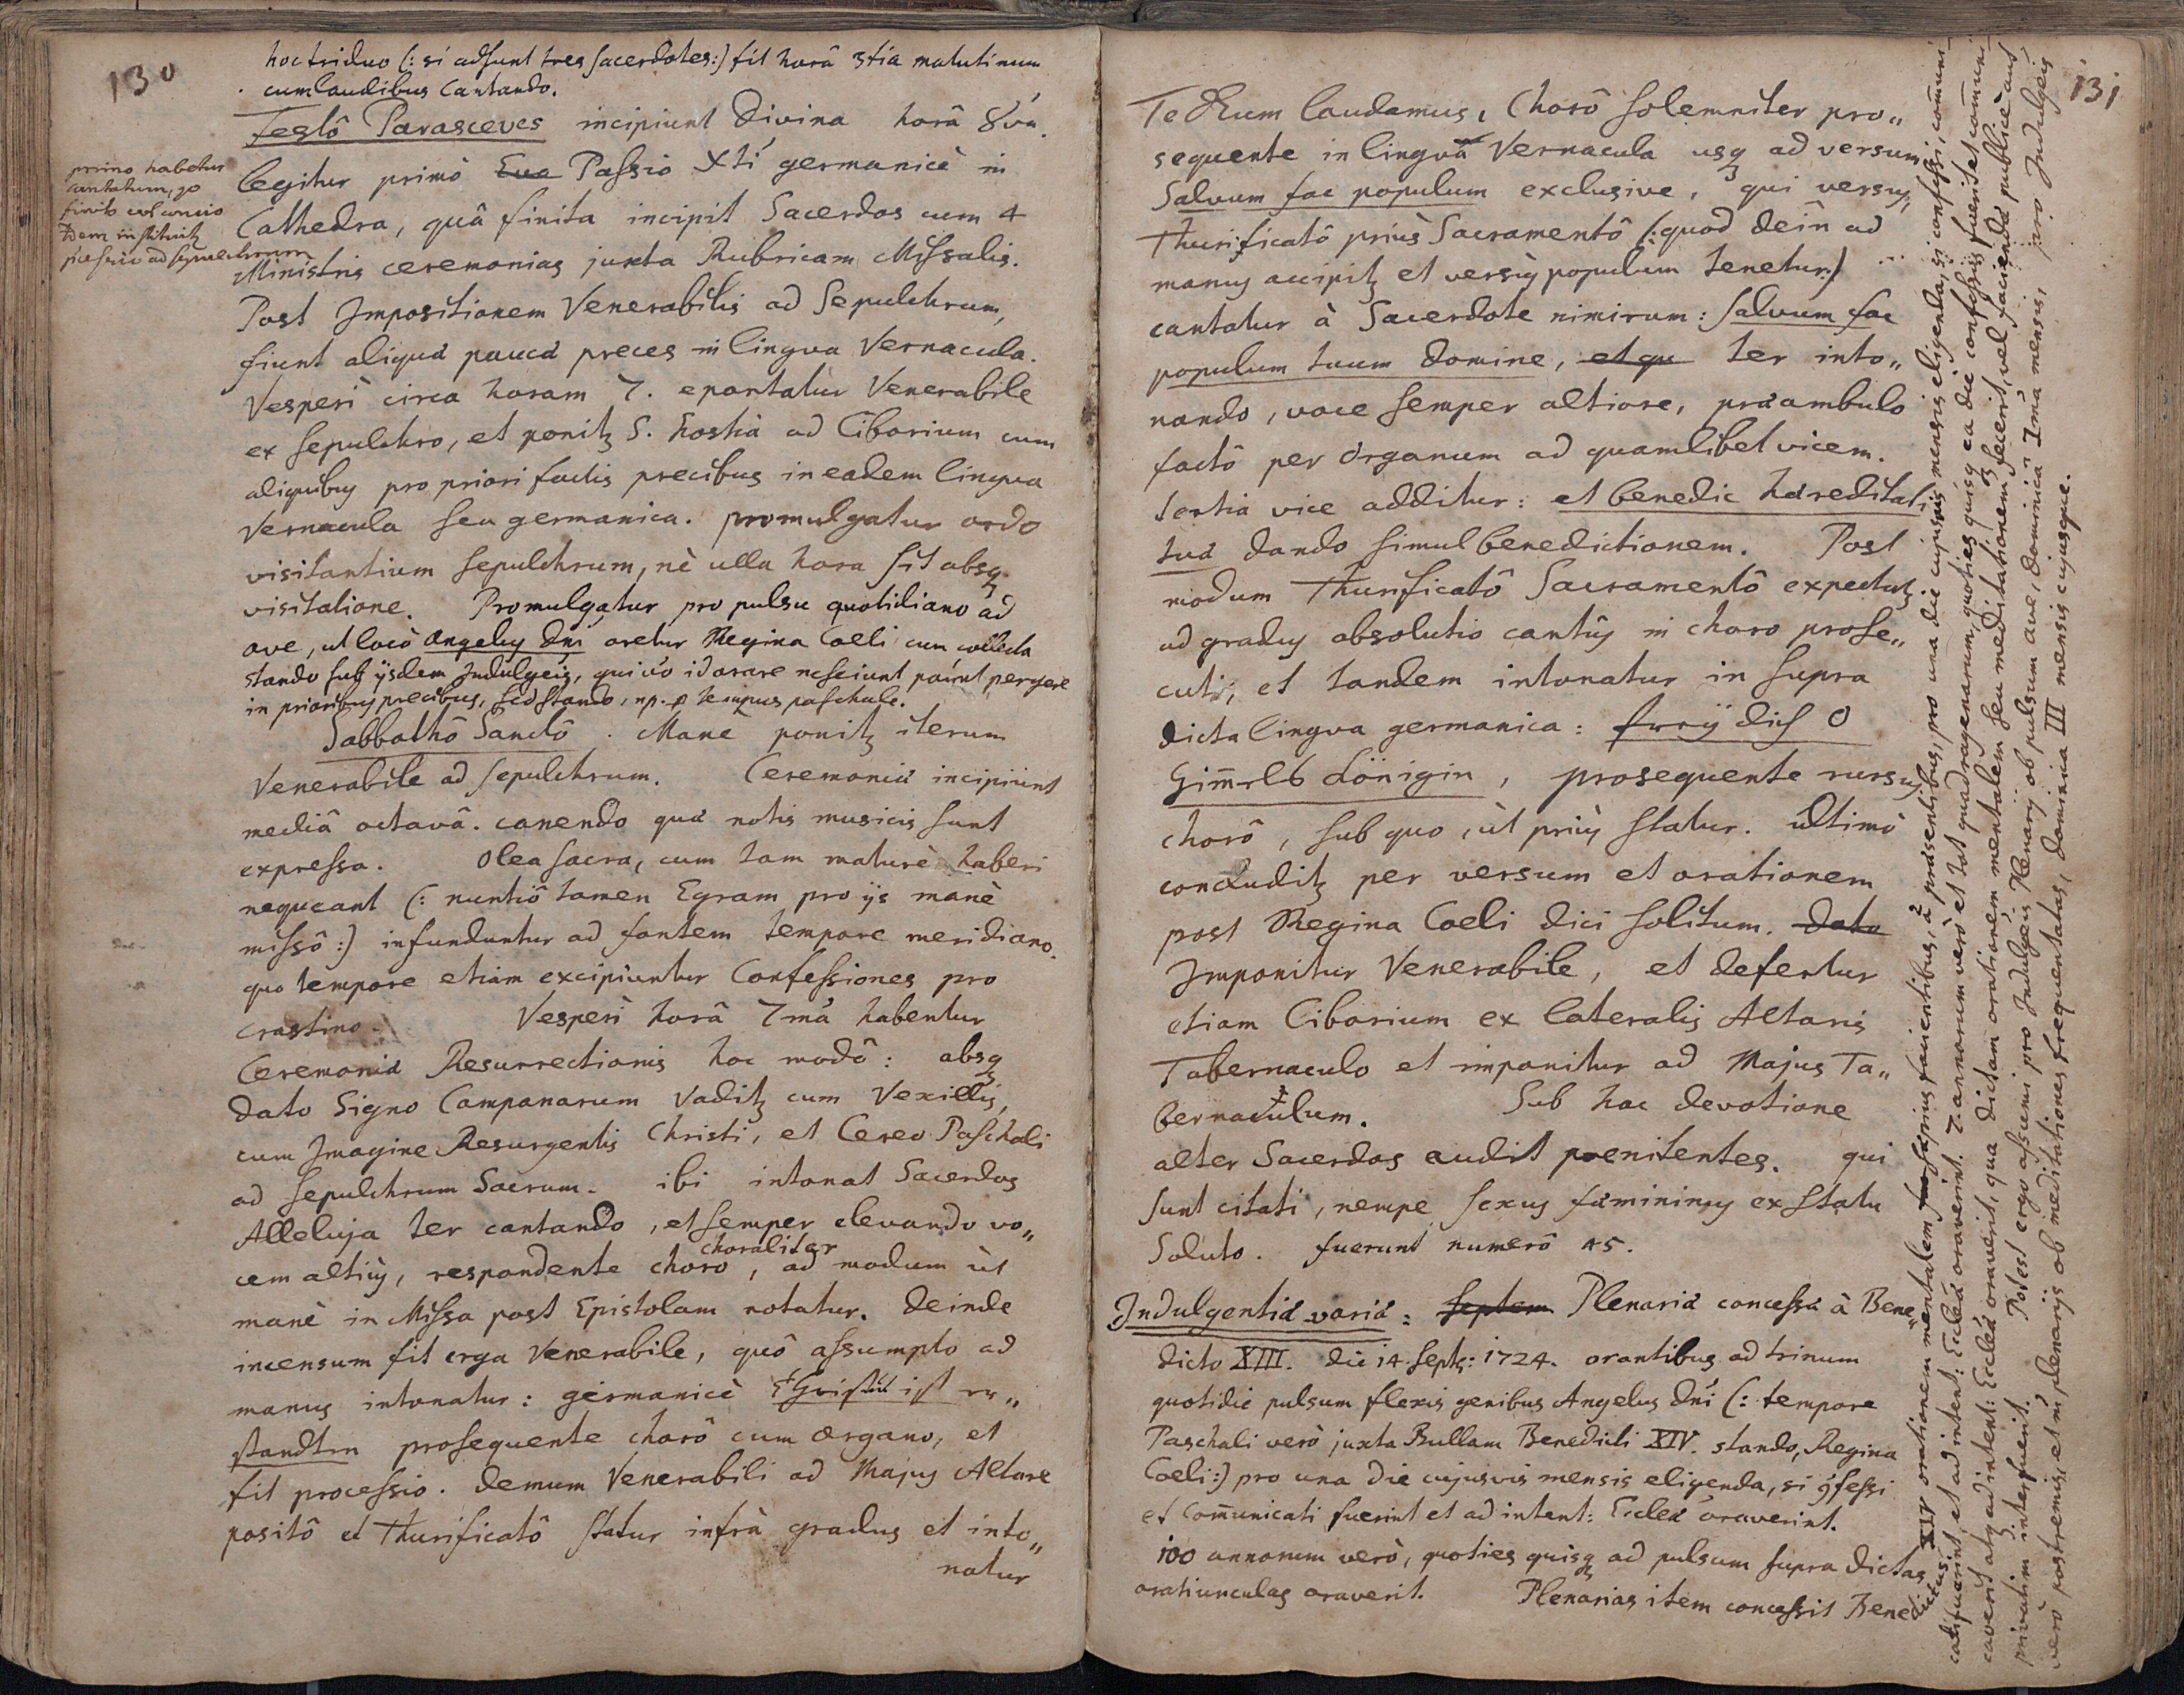 130
hoc triduo (: si adsunt tres sacerdotes:) fit horâ 3tia matutinum
cum laudibus cantando.
Festô Parasceves incipiunt Divina horâ 8vâ.
legitur primò Eva Passio Xti germanicè in
Cathedra, quâ finita incipit Sacerdos cum 4
Ministris ceremonias juxta Rubricam Missalis.
Post Impositionem Venerabilis ad Sepulchrum,
fiunt aliqua pauca preces in lingua Vernacula.
Vesperi circa horam 7. exportatur Venerabile
ex sepulchro, et ponitz S. hostia ad Ciborium cum
aliquibus pro priori factis precibus in eadem lingua
Vernacula seu germanica. promulgatur ordo
visitantium sepulchrum, nè ulla hora sit absq
visitatione. Promulgatur pro pulsu quotidiano ad
ave, ut locò Angelus Dni oretur Regina Coeli cum collecta
stando sub ijsdem Indulgeis, qui vo id orare nesciunt point pergere
in prioribus precibus, sed stando, np. p tempus paschale.
Sabbathô Sanctô. Manè ponitz iterum
Venerabile ad sepulchrum. Ceremonia incipiunt
mediâ octavâ. canendo qua notis musicis sunt
expressa. Olea sacra, cum tam maturè haberi
nequeant (: nuntiô tamen Egram pro ijs manè
missô :) infunduntur ad fontem tempore meridiano.
quo tempore etiam excipiuntur Confessiones pro
crastino. Vesperi horâ 7mâ habentur
Ceremonia Resurrectionis hoc modô: absq
dato Signo Campanarum vaditz cum Vexillis,
cum Imagine Resurgentis Christi, et Cereo Paschali
ad sepulchrum Sacrum. ibi intonat Sacerdos
Alleluja ter cantando, et semper elevando vo„
cem altius, respondente choro choraliter, ad modum ùt
manè in Missa post Epistolam notatur. deinde
incensum fit erga Venerabile, quô assumpto ad
manus intonatur: germanicè Christus ist er„
standten prosequente chorô cum organo, et
fit processio. demum Venerabili ad Majus Altare
positô et thurificatô statur infrà gradus et into„
natur
primo habetur
cantatum, go
finito
processio ad sepulchrum
131
Te Deum laudamus, Chorô solemniter pro„
sequente in linguâ Vernacula usq ad versum
Salvum fac populum exclusive, qui versus,
Thurificatô priùs Sacramentô (: quod dein ad
manus accipitz et versùs populum tenetur:)
cantatur à Sacerdote nimirum: Salvum fac
populum tuum Domine, et qu ter into„
nando, voce semper altiore, praambulo
factô per organum ad quamlibet vicem.
tertia vice additur: et benedic haereditati
tua dando simul benedictionem. Post
modum Thurificatô Sacramentô expectatz
ad gradus absolutio cantûs in choro prose„
cuti, et tandem intonatur in supra
dicta lingua germanica: freÿ dich O
Himels Königin, prosequente rursus
chorô, sub quo, ùt priùs statur. ultimò
concluditz per versum et orationem
post Regina Coeli dici solitum. dato
Imponitur Venerabile, et defertur
etiam Ciborium ex lateralis Altaris
Tabernaculo et imponitur ad Majus Ta„
bernaculum. Sub hac devotione
alter Sacerdos audit poenitentes. qui
sunt citati, nempe sexus faemininus ex statu
Soluto. fuerunt numerô 45.
Indulgentia varia: septem Plenaria concessa à Bene„
dicto XIII. die 14 Septs: 1724. orantibus ad trinum
quotidie pulsum flexis genibus Angelus Dni (: tempore
Paschali verò juxta Bullam Benedicti XIV. stando, Regina
Coeli:) pro una die cujusvis mensis eligenda, si gfessi
et comunicati fuerint et ad intent: Eccleae oraverint.
100 annorum verò, quoties quisq ad pulsum supra dictas
oratiunculas oraverit. Plenarias item concessit Bene„
dictus XIV orationem mentalem saepius facientibus, à praesentibus, pro una die cujusvis mensis eligenda, si confessi, comuni„
cati fuerint, et ad intent: Eccleae oraverint. 7. annorum verò et tot quadragenarum, quoties quisq ea die confessus fuerit et comuni„
caverit atq ad intent: Eccleae oraverit, qua dictam orationem mentalem seu meditationem fecerit, vel facienda publicè aut
privatim interfuerit. Potest ergo assumi pro Indulgeis Plenarij ob pulsum ave, dominica Ima mensis, pro Indulgeis
verò postremis, et in plenarijs ob meditationes frequentatas, dominica III mensis cujusque.